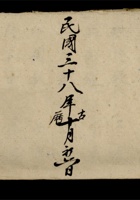 民國三十八年
古曆
十月日